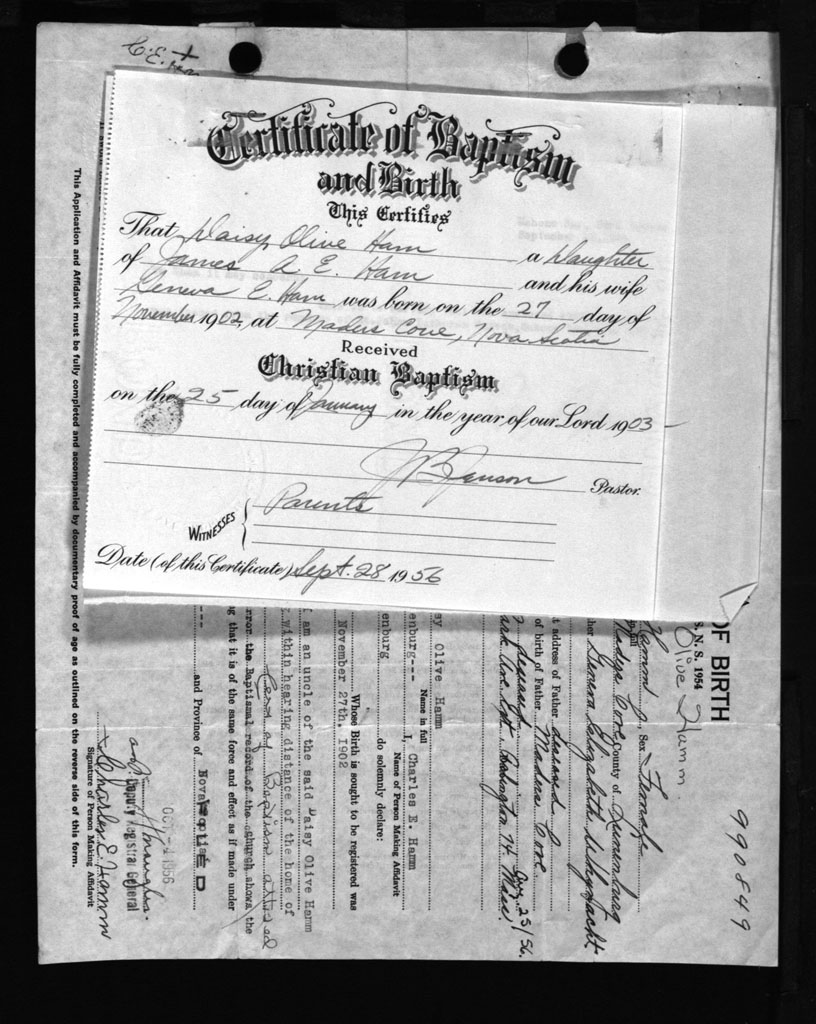 C.E.
Certificate of Baptism
and Birth
This Certifies
That Daisy Olive Ham a Daughter
of James A. E. Ham and his wife
Geneva E. Ham was born on the 27 day of
November 1902, at Maders Cove, Nova Scotia
Received
Christian Baptism
on the 25 day of January in the year of our Lord 1903
Pastor.
WITNESSES
Parents
Date (of this Certificate) Sept. 28 1956
This Application and Affidavit must be fully completed and accompanied by documentary proof of age as outlined on the reverse side of this form.
990849
OF BIRTH
S. N. S. 1954
Olive Hamm
Hamm Sex Female
Maders Cove County of Lunenburg
Geneva Elizabeth
address of Father deceased
of birth of Father Maders Cove
deceased
Aug. 25/56.
Olive Hamm
Name in full
I, Charles E. Hamm
Name of Person Making Affidavit
enburg---
enburg do solemnly declare:
Whose Birth is sought to be registered was
November 27th. 1902
I am an uncle of the said Daisy Olive Hamm
within hearing distance of the home of
Baptism attached
rror. the Baptismal record of the church shows the
g that it is of the same force and effect as if made under
and Province of Nova
OCT 1956
Deputy Registrar General
Charles E. Hamm
Signature of Person Making Affidavit